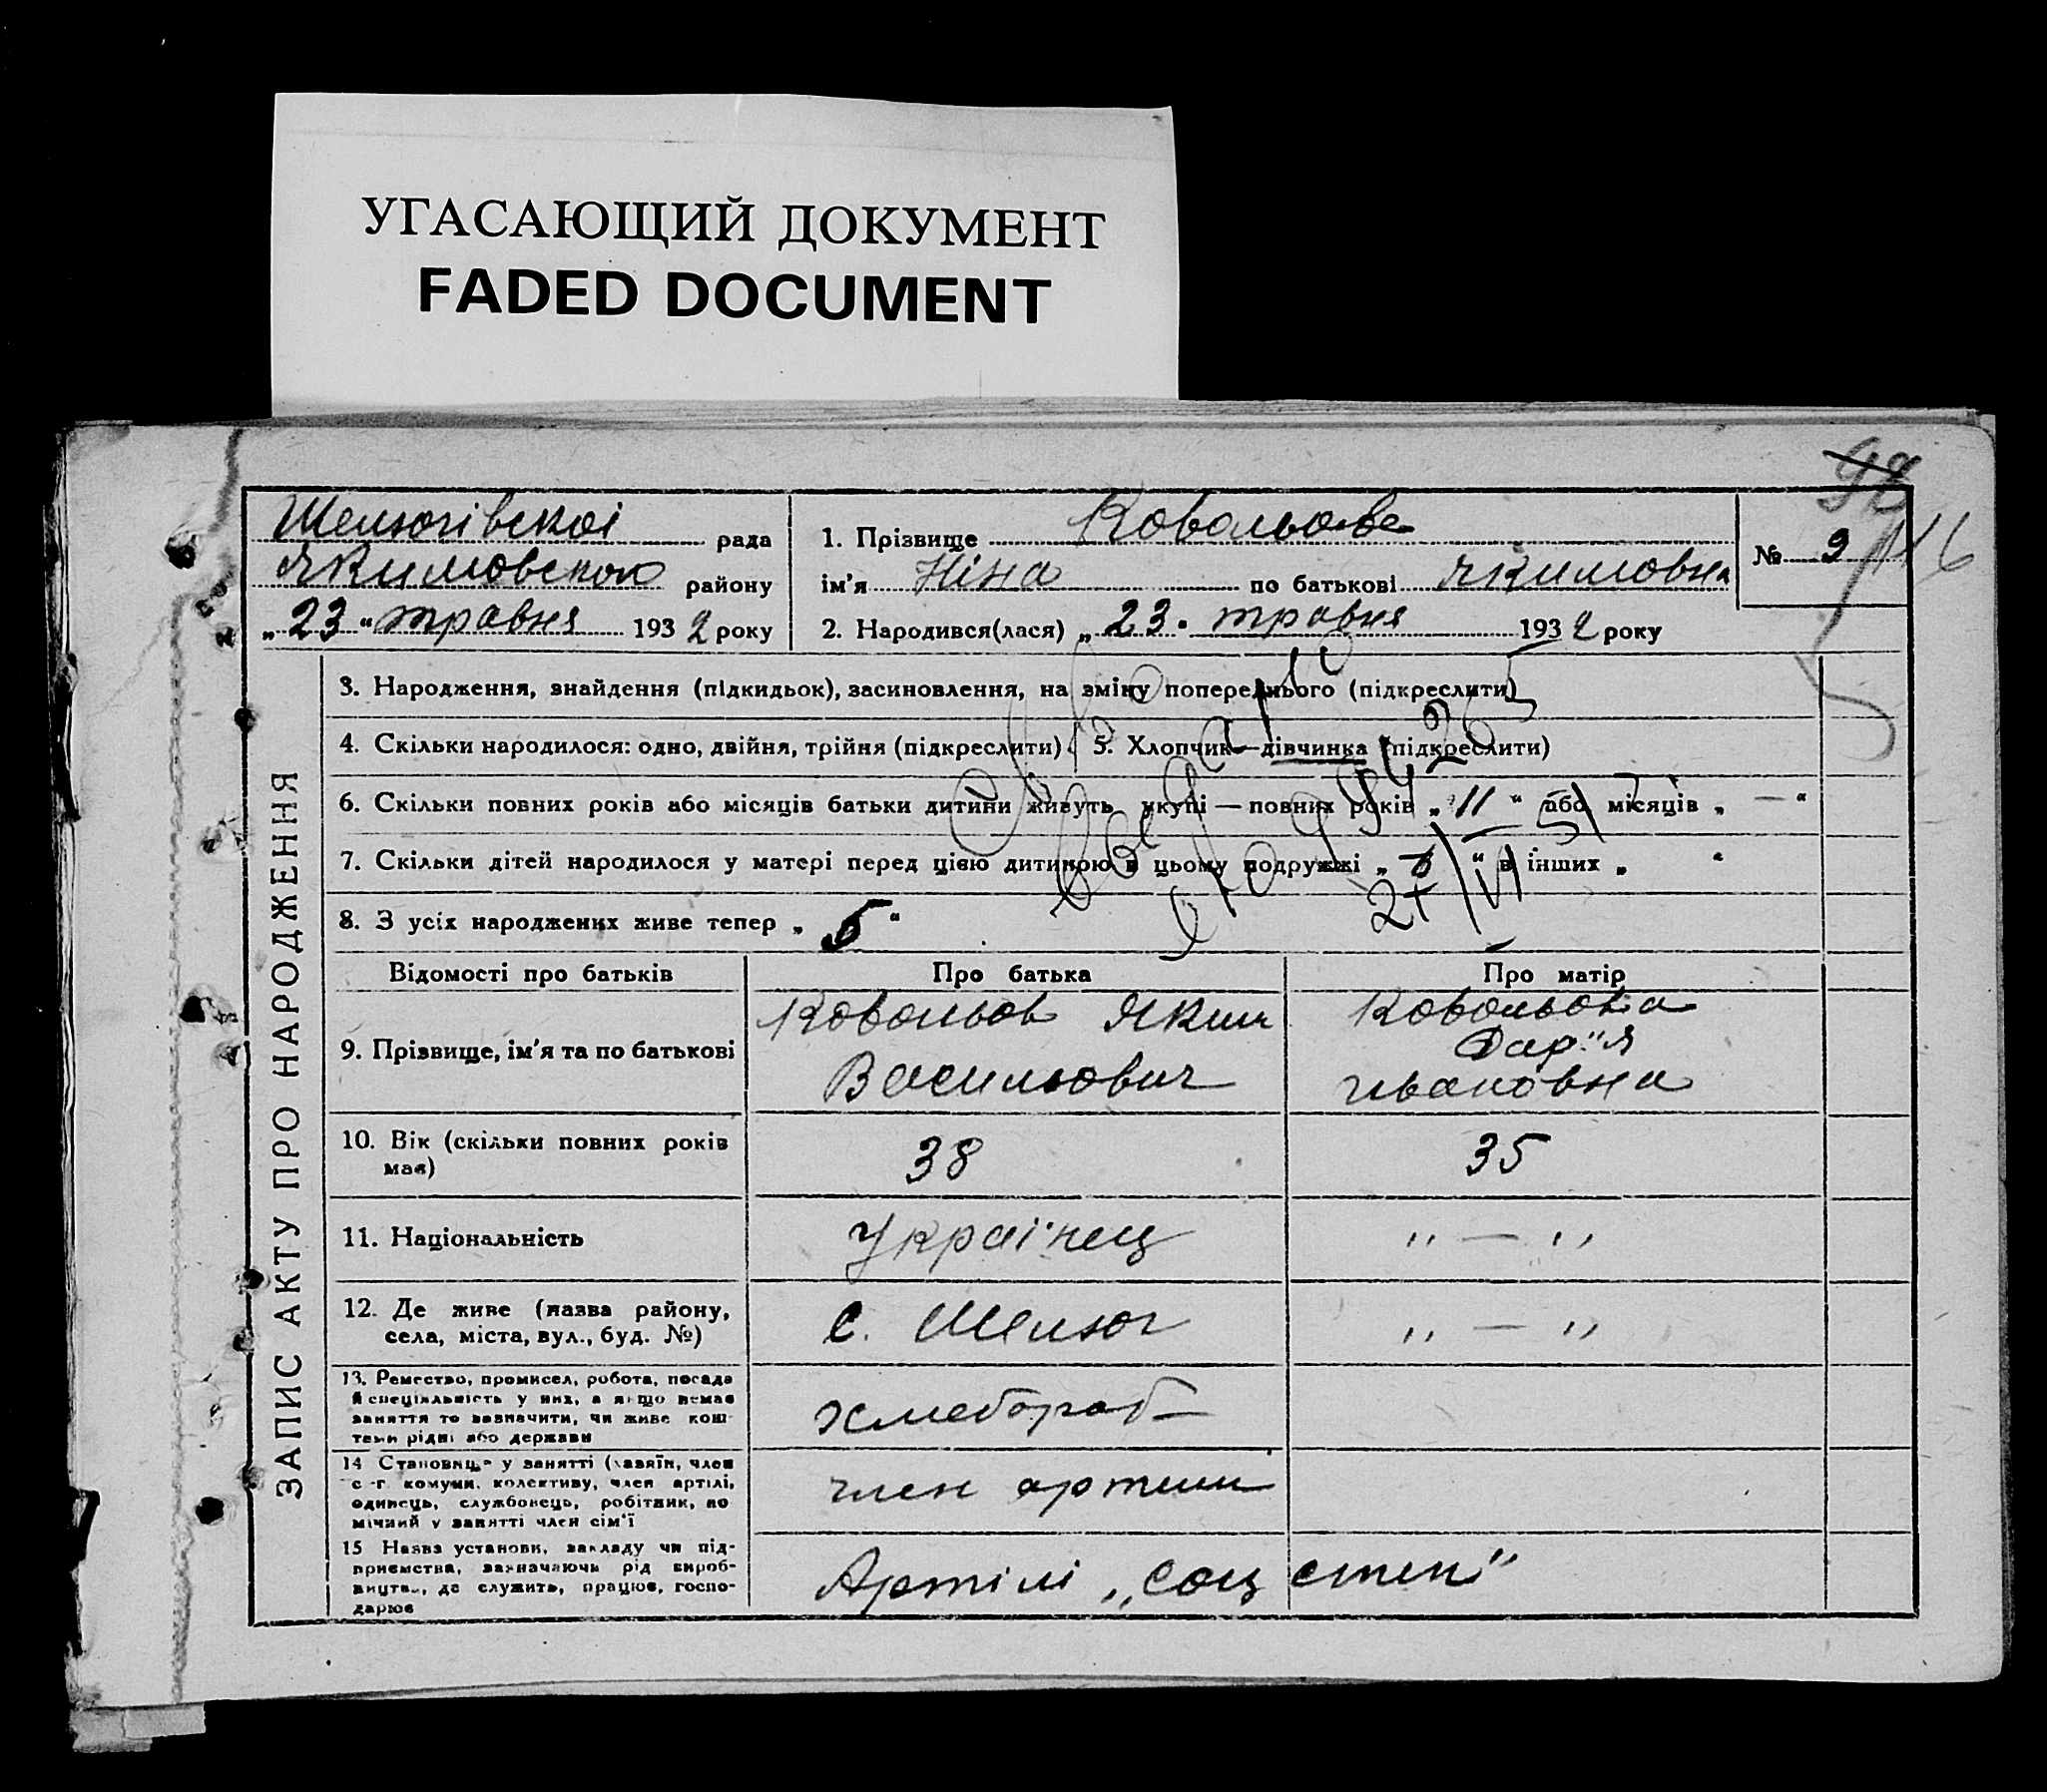 УГАСАЮЩИЙ ДОКУМЕНТ
FADED DOCUMENT
Шелюгівскої рада
Якимовского району
„23“ травня 1932 року
1. Прізвище Ковальова
ім'я Ніна по батькові Якимовна
№ 9
98
116
2. Народився(лася) „23“ травня 1932 року
ЗАПИС АКТУ ПРО НАРОДЖЕННЯ
3. Народження, знайдення (підкидьок), засиновлення, на зміну попереднього (підкреслити)
4. Скільки народилося: одно, двійня, трійня (підкреслити)
5. Хлопчик—дівчинка (підкреслити)
6. Скільки повних років або місяців батьки дитини живуть укупі — повних років „11“ або місяців „—“
7. Скільки дітей народилося у матері перед цією дитиною в цьому подружжі „ “ в інших „ “
8. З усіх народжених живе тепер „5“
Відомості про батьків
Про батька
Про матір
9. Прізвище, ім'я та по батькові
Ковальов Яким
Васильович
Ковальова
Дар"я
Ивановна
10. Вік (скільки повних років
має)
38
35
11. Національність
Українец
"—"
12. Де живе (назва району,
села, міста, вул., буд. №)
с. Шелюг
"—"
13. Ремество, промисел, робота, посада
й спеціяльність у них, а якщо немає
заняття то зазначити, чи живе кош-
тами рідні або держави
хлебороб
14 Становище у занятті (хазяїн, член
с-г. комуни, колективу, член артілі,
одинець, службовець, робітник, по
мічний у занятті член сім'ї
член артили
15 Назва установи, закладу чи під-
приємства, зазначаючи рід вироб-
ництва, де служить, працює, госпо-
дарює
Артілі „Соц степ"